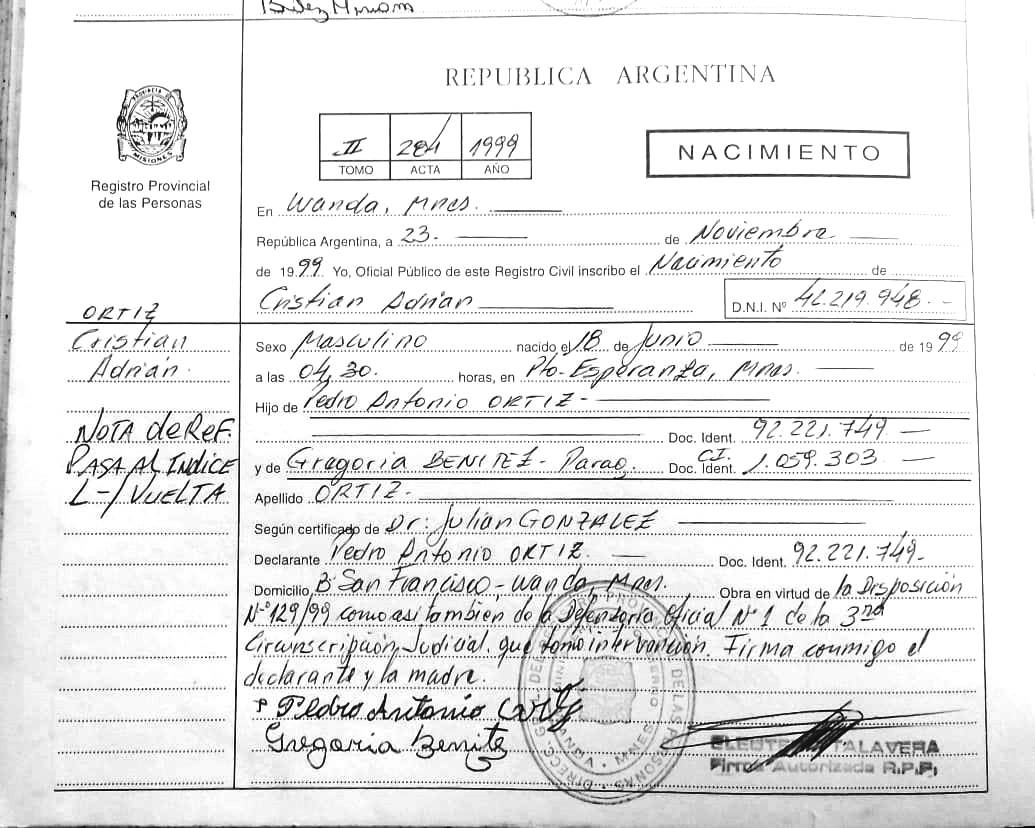 REPUBLICA ARGENTINA
PROVINCIA DE
MISIONES
Registro Provincial
de las Personas
II 284 1999
TOMO ACTA AÑO
NACIMIENTO
En Wanda, Mnes.
República Argentina, a 23. de Noviembre
de 1999 Yo, Oficial Público de este Registro Civil inscribo el Nacimiento de
Cristian Adrián D.N.I. Nº 42.219.948.-
ORTIZ
Cristian
Adrián.
NOTA de ReF.
PASA AL INDICE
L-/VUELTA
Sexo Masculino nacido el 18 de Junio de 1999
a las 04,30. horas, en Pto. Esperanza, Mnes.
Hijo de Pedro Antonio ORTIZ-
Doc. Ident. 92.221.749
y de Gregoria BENITEZ- Parag. Doc. Ident. CI. 1.059.303
Apellido ORTIZ.
Según certificado de Dr: Julián GONZALEZ
Declarante Pedro Antonio ORTIZ. Doc. Ident. 92.221.749-
Domicilio Bº San Francisco-Wanda, Mnes. Obra en virtud de la Disposición
Nº 129/99 como asi también de la Defensoría Oficial Nº 1 de la 3ra
Circunscripción Judicial. que tomo intervención. Firma conmigo el
declarante y la madre.
Pedro Antonio Ortiz
Gregoria Benitez
TALAVERA
Firma Autorizada R.P.P.